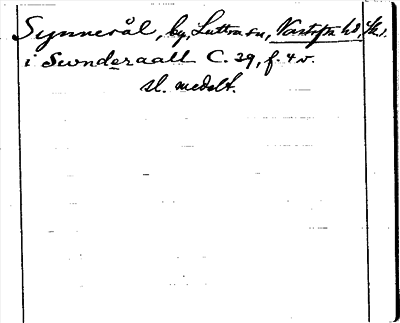 Synnerål, by, Luttra sn, Vartofta hd, Sk.
i Swnderaall C. 29, f. 4 v.
sl. medelt.